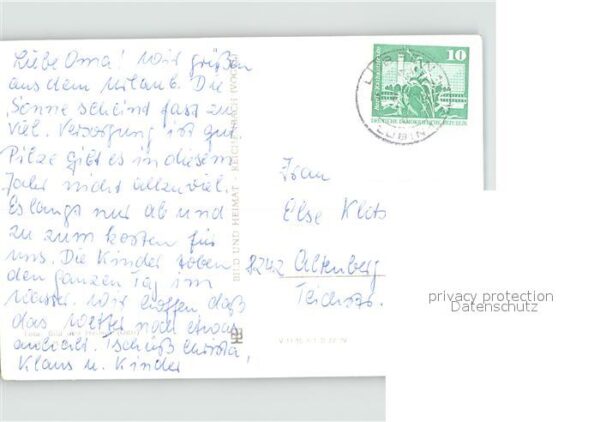 Liebe Oma! Wir grüßen
aus dem Urlaub. Die
Sonne scheint fast zu
viel. Versorgung ist gut
Pilze gibt es in diesem
Jahr nicht allzuviel.
Es langt nur ab und
zu zum kosten für
uns. Die Kinder toben
den ganzen Tag im
Wasser. Wir hoffen daß
das Wetter noch etwas
aushält. Tschüß Christa,
Klaus u. Kinder
BILD UND HEIMAT REICHENBACH (VOGTL)
10
DEUTSCHE DEMOKRATISCHE REPUBLIK
Frau
Else
8242 Altenberg
Teichstr.
privacy protection
Datenschutz